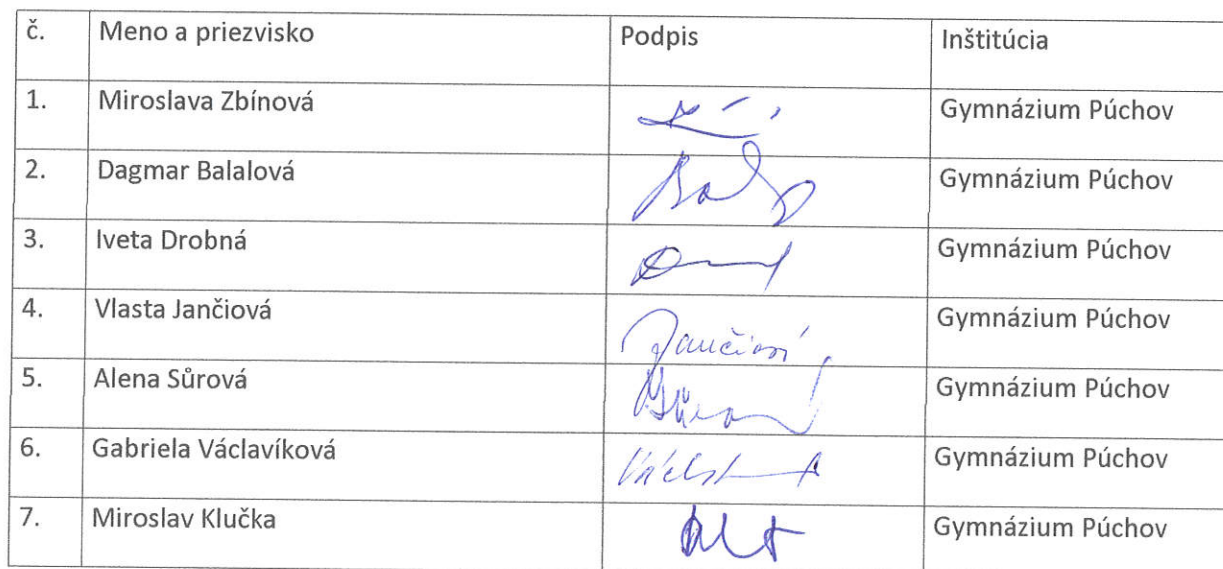 č. Meno a priezvisko Podpis Inštitúcia
1. Miroslava Zbínová Gymnázium Púchov
2. Dagmar Balalová Gymnázium Púchov
3. Iveta Drobná Gymnázium Púchov
4. Vlasta Jančiová Jančiová Gymnázium Púchov
5. Alena Sûrová Gymnázium Púchov
6. Gabriela Václavíková Gymnázium Púchov
7. Miroslav Klučka Gymnázium Púchov